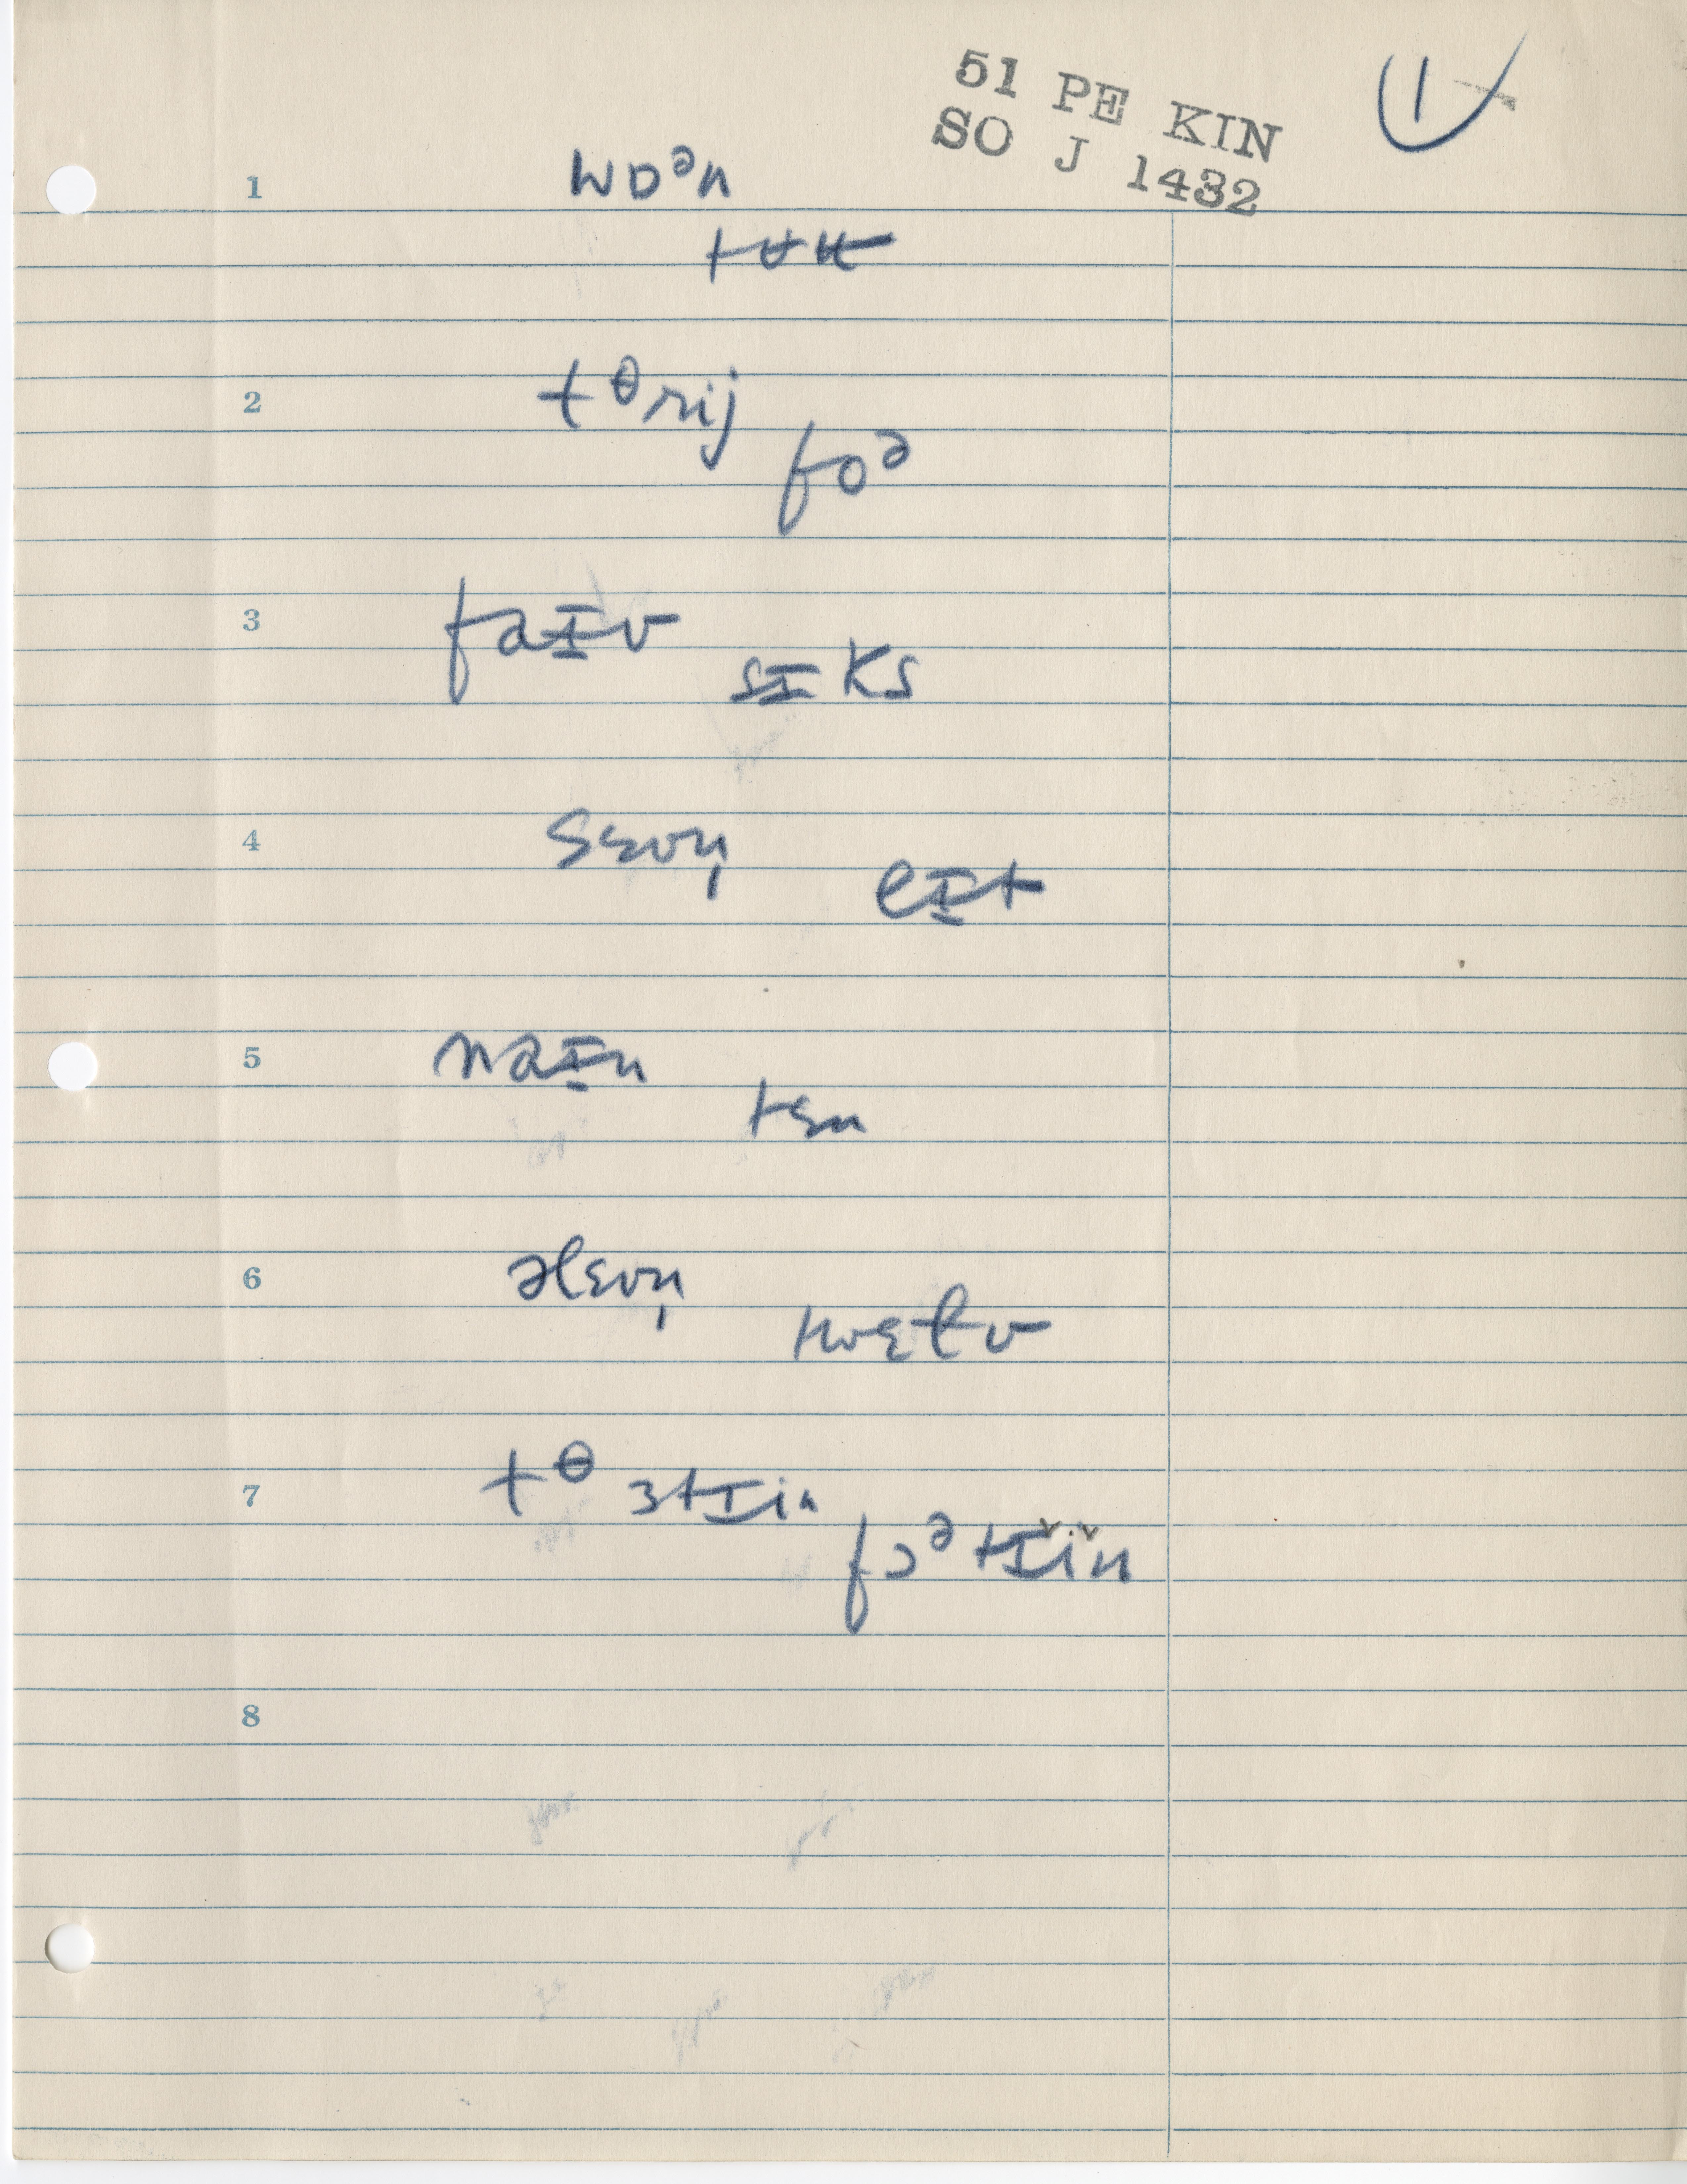 51 PE KIN
SO J 1432
1
1 wɒᵊn
tʉʉ
2 tᶿrij
foᵊ
3 faɪv
sɪks
4 sɛvn̩
eɪt
5 naɪn
tɛn
6 əlɛvn̩
twɛɫv
7 tᶿɜtɪin
fɔᵊtɪ̌ǐn
8